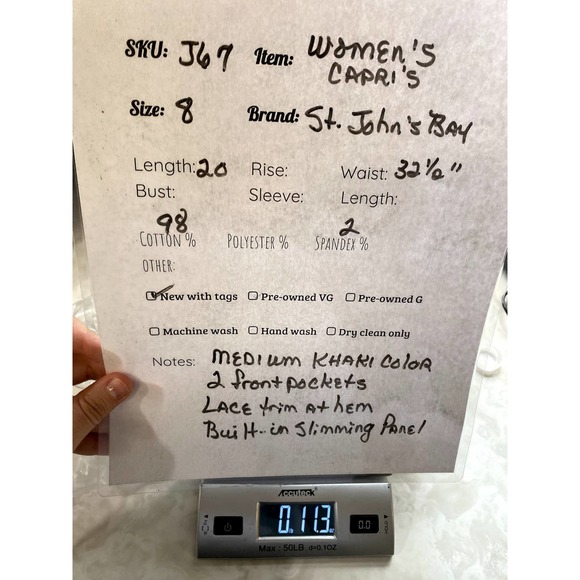 SKU: J67 Item: WOMEN'S
CAPRI'S
Size: 8 Brand: St. John's BAY
Length: 20 Rise: Waist: 32 1/2"
Bust: Sleeve: Length:
98 2
COTTON % POLYESTER % SPANDEX %
OTHER:
New with tags Pre-owned VG Pre-owned G
Machine wash Hand wash Dry clean only
Notes: MEDIUM KHAKI COLOR
2 front pockets
LACE trim At hem
Built-in Slimming PANEl
Accuteck
0.11.3 0.0
Max: 50LB d=0.1OZ